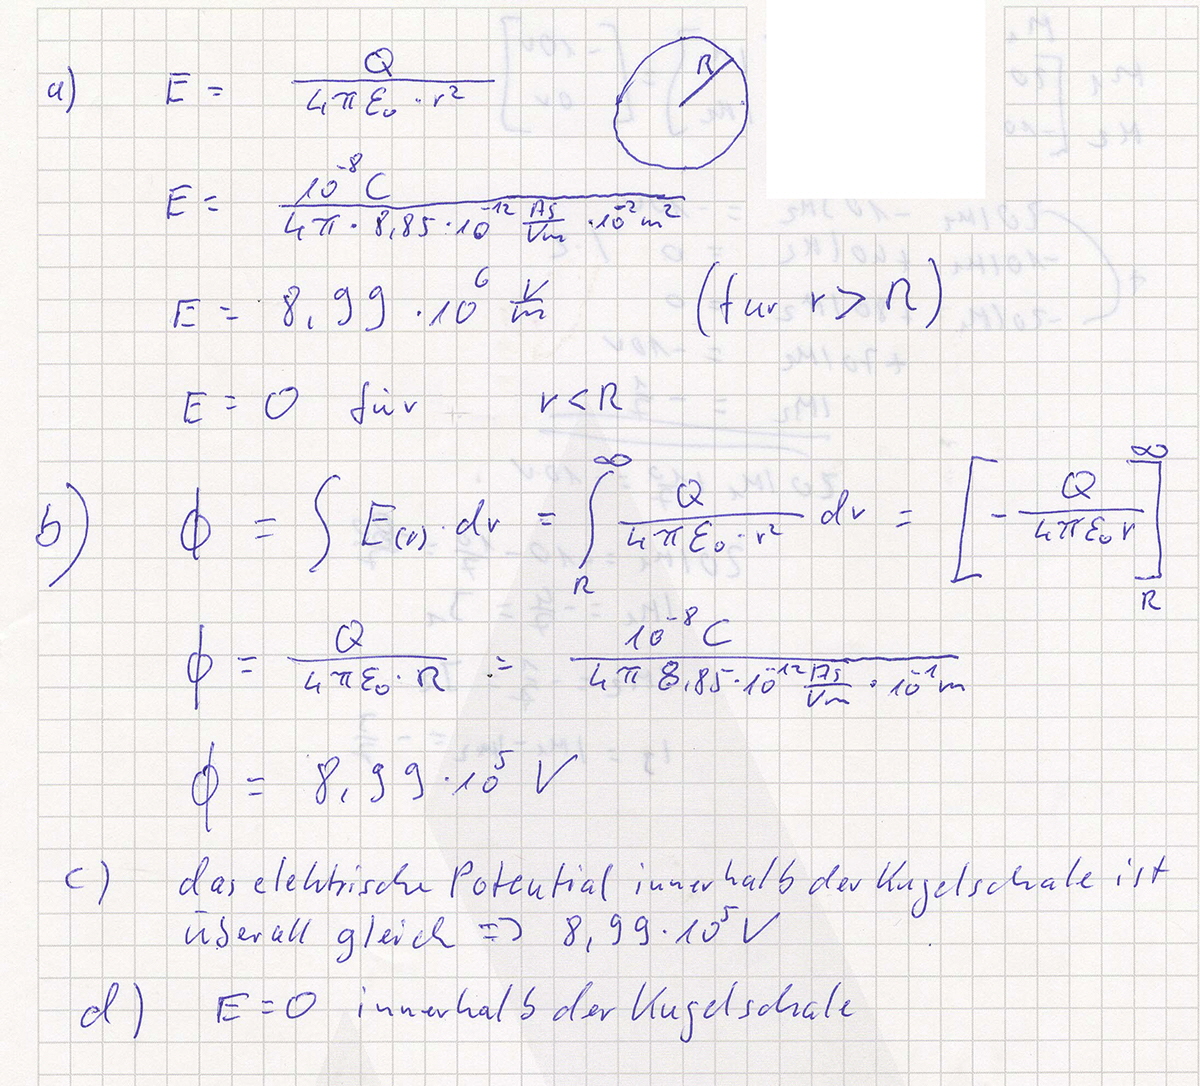 a) E = Q / (4πε₀ · r²) R
E = 10⁻⁸ C / (4π · 8,85 · 10⁻¹² As/Vm · 10⁻² m²)
E = 8,99 · 10⁶ V/m (für r > R)
E = 0 für r < R
b) ϕ = ∫ E(r) · dr = ∫_R^∞ Q / (4πε₀ · r²) dr = [ - Q / (4πε₀ r) ]_R^∞
ϕ = Q / (4πε₀ · R) = 10⁻⁸ C / (4π 8,85 · 10⁻¹² As/Vm · 10⁻¹ m)
ϕ = 8,99 · 10⁵ V
c) das elektrische Potential innerhalb der Kugelschale ist
überall gleich => 8,99 · 10⁵ V
d) E = 0 innerhalb der Kugelschale